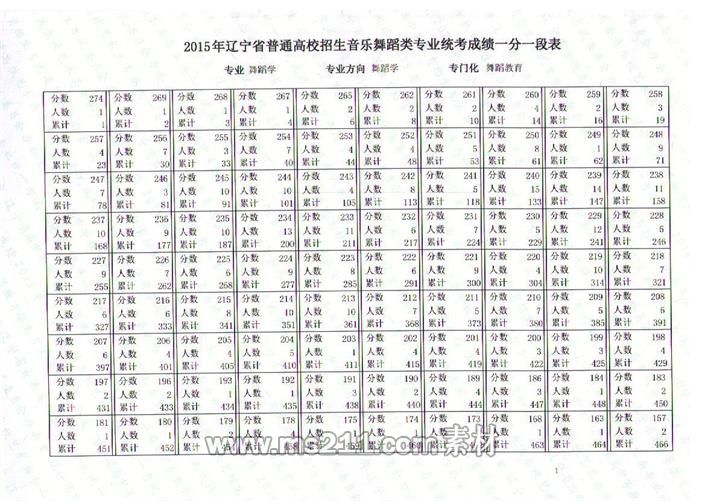 2015年辽宁省普通高校招生音乐舞蹈类专业统考成绩一分一段表
专业 舞蹈学 专业方向 舞蹈学 专门化 舞蹈教育
分数 274 分数 269 分数 268 分数 267 分数 265 分数 262 分数 261 分数 260 分数 259 分数 258
人数 1 人数 1 人数 1 人数 1 人数 2 人数 2 人数 2 人数 4 人数 2 人数 3
累计 1 累计 2 累计 3 累计 4 累计 6 累计 8 累计 10 累计 14 累计 16 累计 19
分数 257 分数 256 分数 255 分数 254 分数 253 分数 252 分数 251 分数 250 分数 249 分数 248
人数 4 人数 7 人数 3 人数 7 人数 4 人数 4 人数 5 人数 8 人数 1 人数 9
累计 23 累计 30 累计 33 累计 40 累计 44 累计 48 累计 53 累计 61 累计 62 累计 71
分数 247 分数 246 分数 245 分数 244 分数 243 分数 242 分数 241 分数 240 分数 239 分数 238
人数 7 人数 3 人数 10 人数 10 人数 4 人数 8 人数 5 人数 15 人数 14 人数 11
累计 78 累计 81 累计 91 累计 101 累计 105 累计 113 累计 118 累计 133 累计 147 累计 158
分数 237 分数 236 分数 235 分数 234 分数 233 分数 232 分数 231 分数 230 分数 229 分数 228
人数 10 人数 9 人数 10 人数 13 人数 11 人数 6 人数 7 人数 5 人数 12 人数 5
累计 168 累计 177 累计 187 累计 200 累计 211 累计 217 累计 224 累计 229 累计 241 累计 246
分数 227 分数 226 分数 225 分数 224 分数 223 分数 222 分数 221 分数 220 分数 219 分数 218
人数 9 人数 7 人数 6 人数 9 人数 8 人数 6 人数 9 人数 4 人数 10 人数 7
累计 255 累计 262 累计 268 累计 277 累计 285 累计 291 累计 300 累计 304 累计 314 累计 321
分数 217 分数 216 分数 215 分数 214 分数 213 分数 212 分数 211 分数 210 分数 209 分数 208
人数 6 人数 6 人数 8 人数 10 人数 10 人数 7 人数 5 人数 7 人数 5 人数 6
累计 327 累计 333 累计 341 累计 351 累计 361 累计 368 累计 373 累计 380 累计 385 累计 391
分数 207 分数 206 分数 205 分数 204 分数 203 分数 202 分数 201 分数 200 分数 199 分数 198
人数 6 人数 4 人数 4 人数 5 人数 1 人数 4 人数 4 人数 3 人数 3 人数 4
累计 397 累计 401 累计 405 累计 410 累计 411 累计 415 累计 419 累计 422 累计 425 累计 429
分数 197 分数 196 分数 193 分数 192 分数 191 分数 190 分数 189 分数 186 分数 184 分数 183
人数 2 人数 2 人数 1 人数 1 人数 3 人数 2 人数 4 人数 3 人数 1 人数 2
累计 431 累计 433 累计 434 累计 435 累计 438 累计 440 累计 444 累计 447 累计 448 累计 450
分数 181 分数 180 分数 179 分数 178 分数 175 分数 174 分数 173 分数 168 分数 163 分数 157
人数 1 人数 1 人数 1 人数 2
累计 451 累计 452 累计 463 累计 464 累计 466
www.ms211.com素材
1